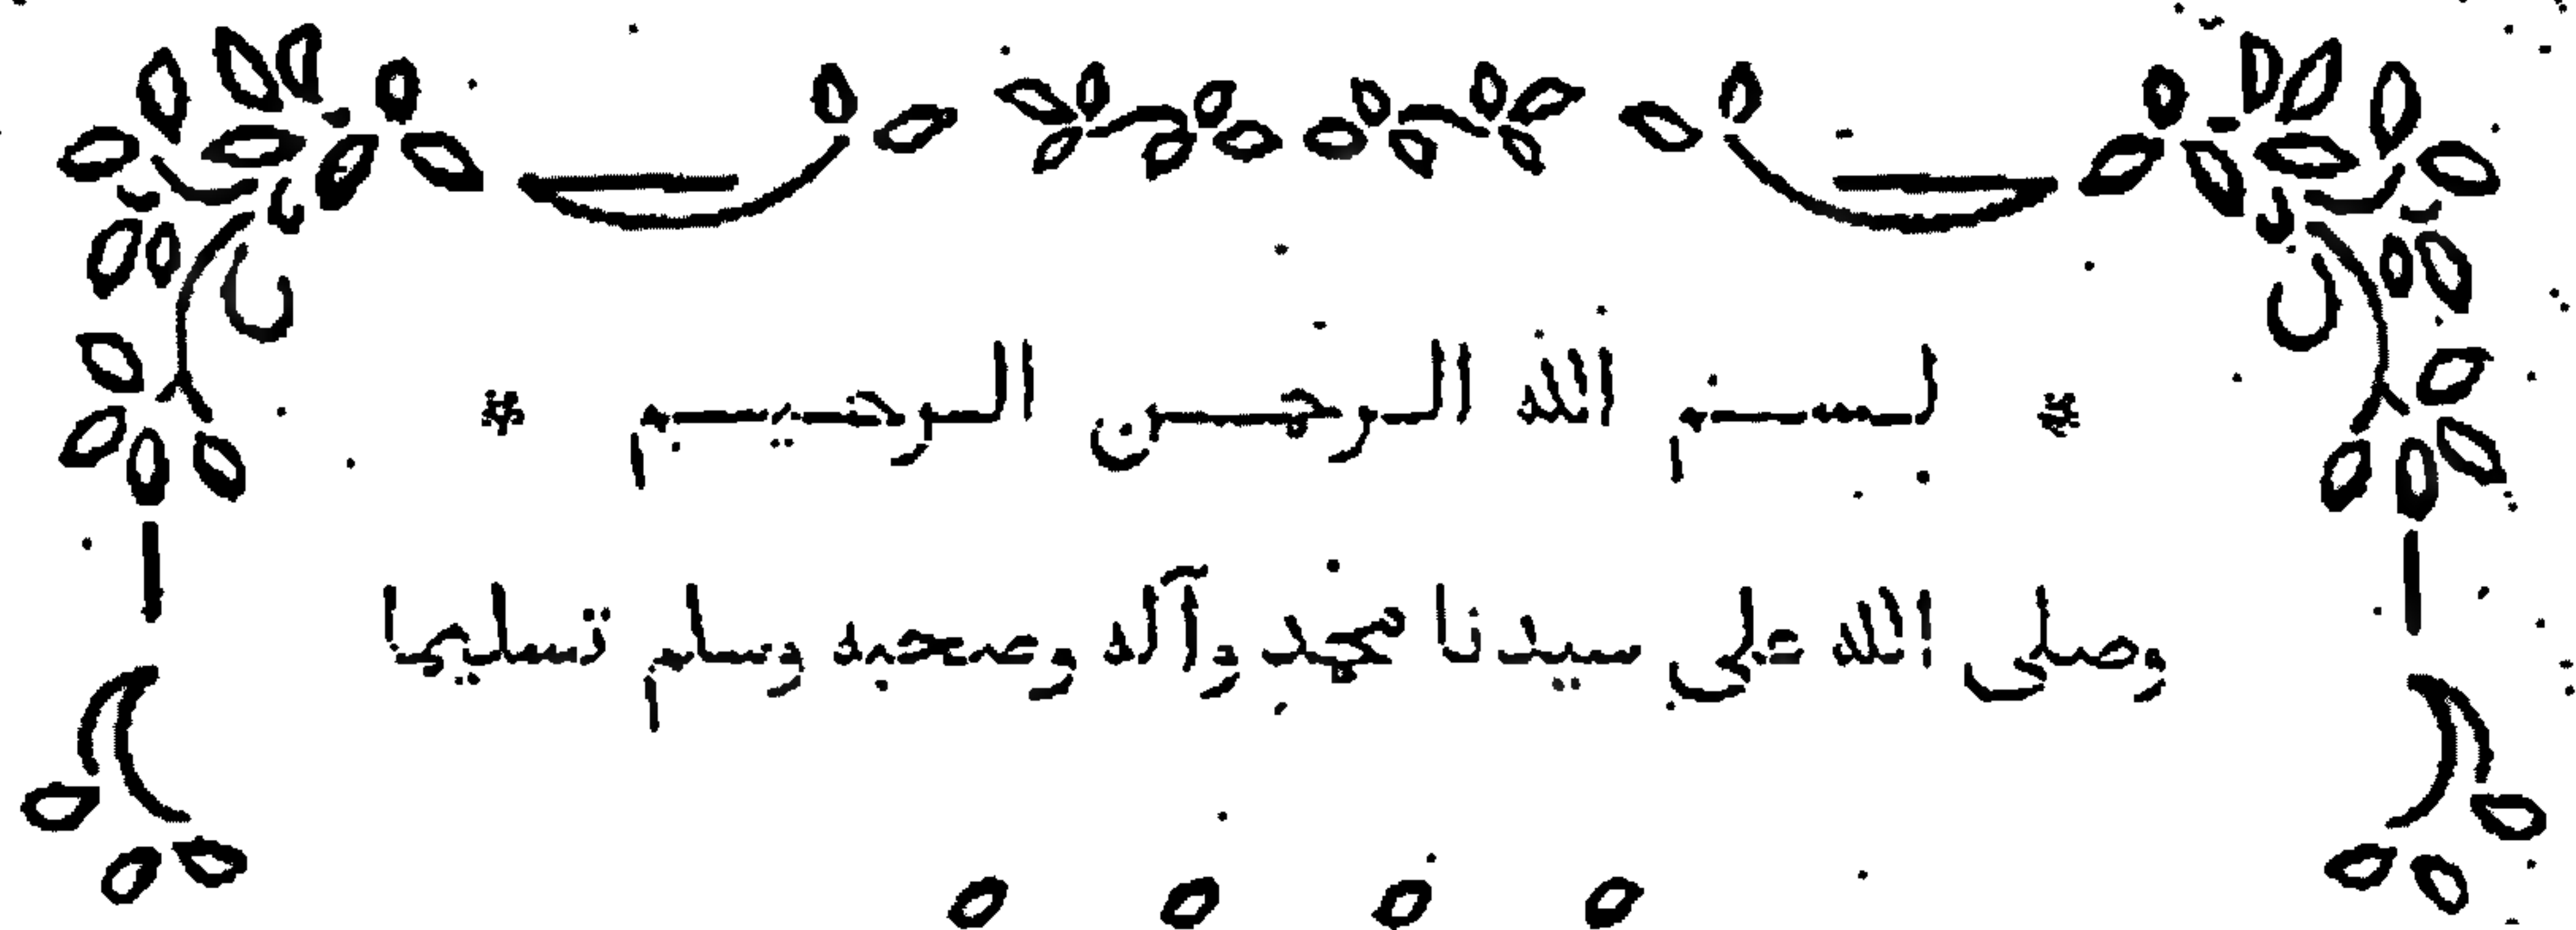 * بسم الله الرحمن الرحيم *
وصلى الله على سيدنا محمد وآله وصحبه وسلم تسليما